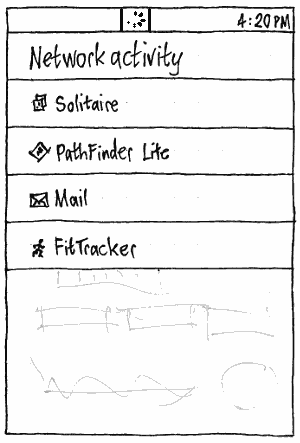 4:20 PM
Network activity
Solitaire
PathFinder Lite
Mail
FitTracker